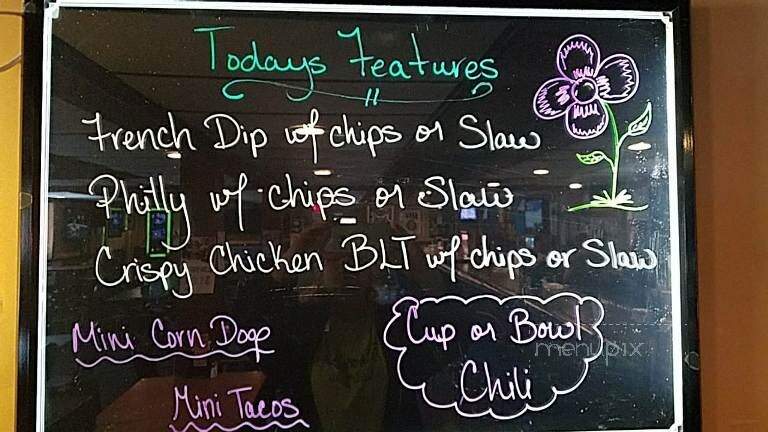 Todays Features
French Dip w/ chips or Slaw
Philly w/ chips or Slaw
Crispy Chicken BLT w/ chips or Slaw
Mini Corn Dogs
Mini Tacos
Cup or Bowl
Chili
menupix